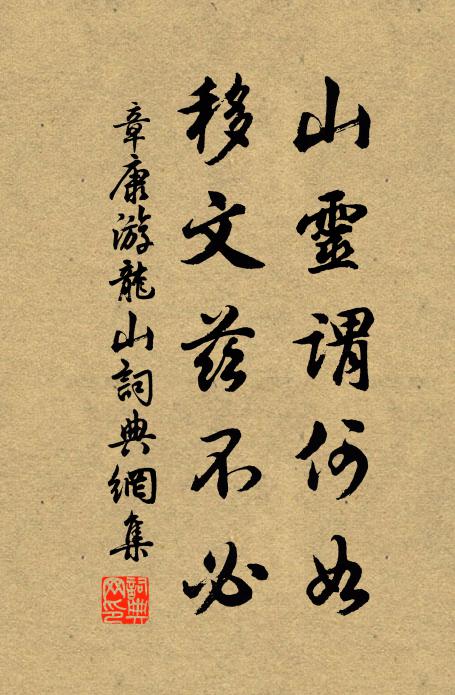 山靈謂何如
移文茲不必
章康游龍山詞典網集
詞典
网印